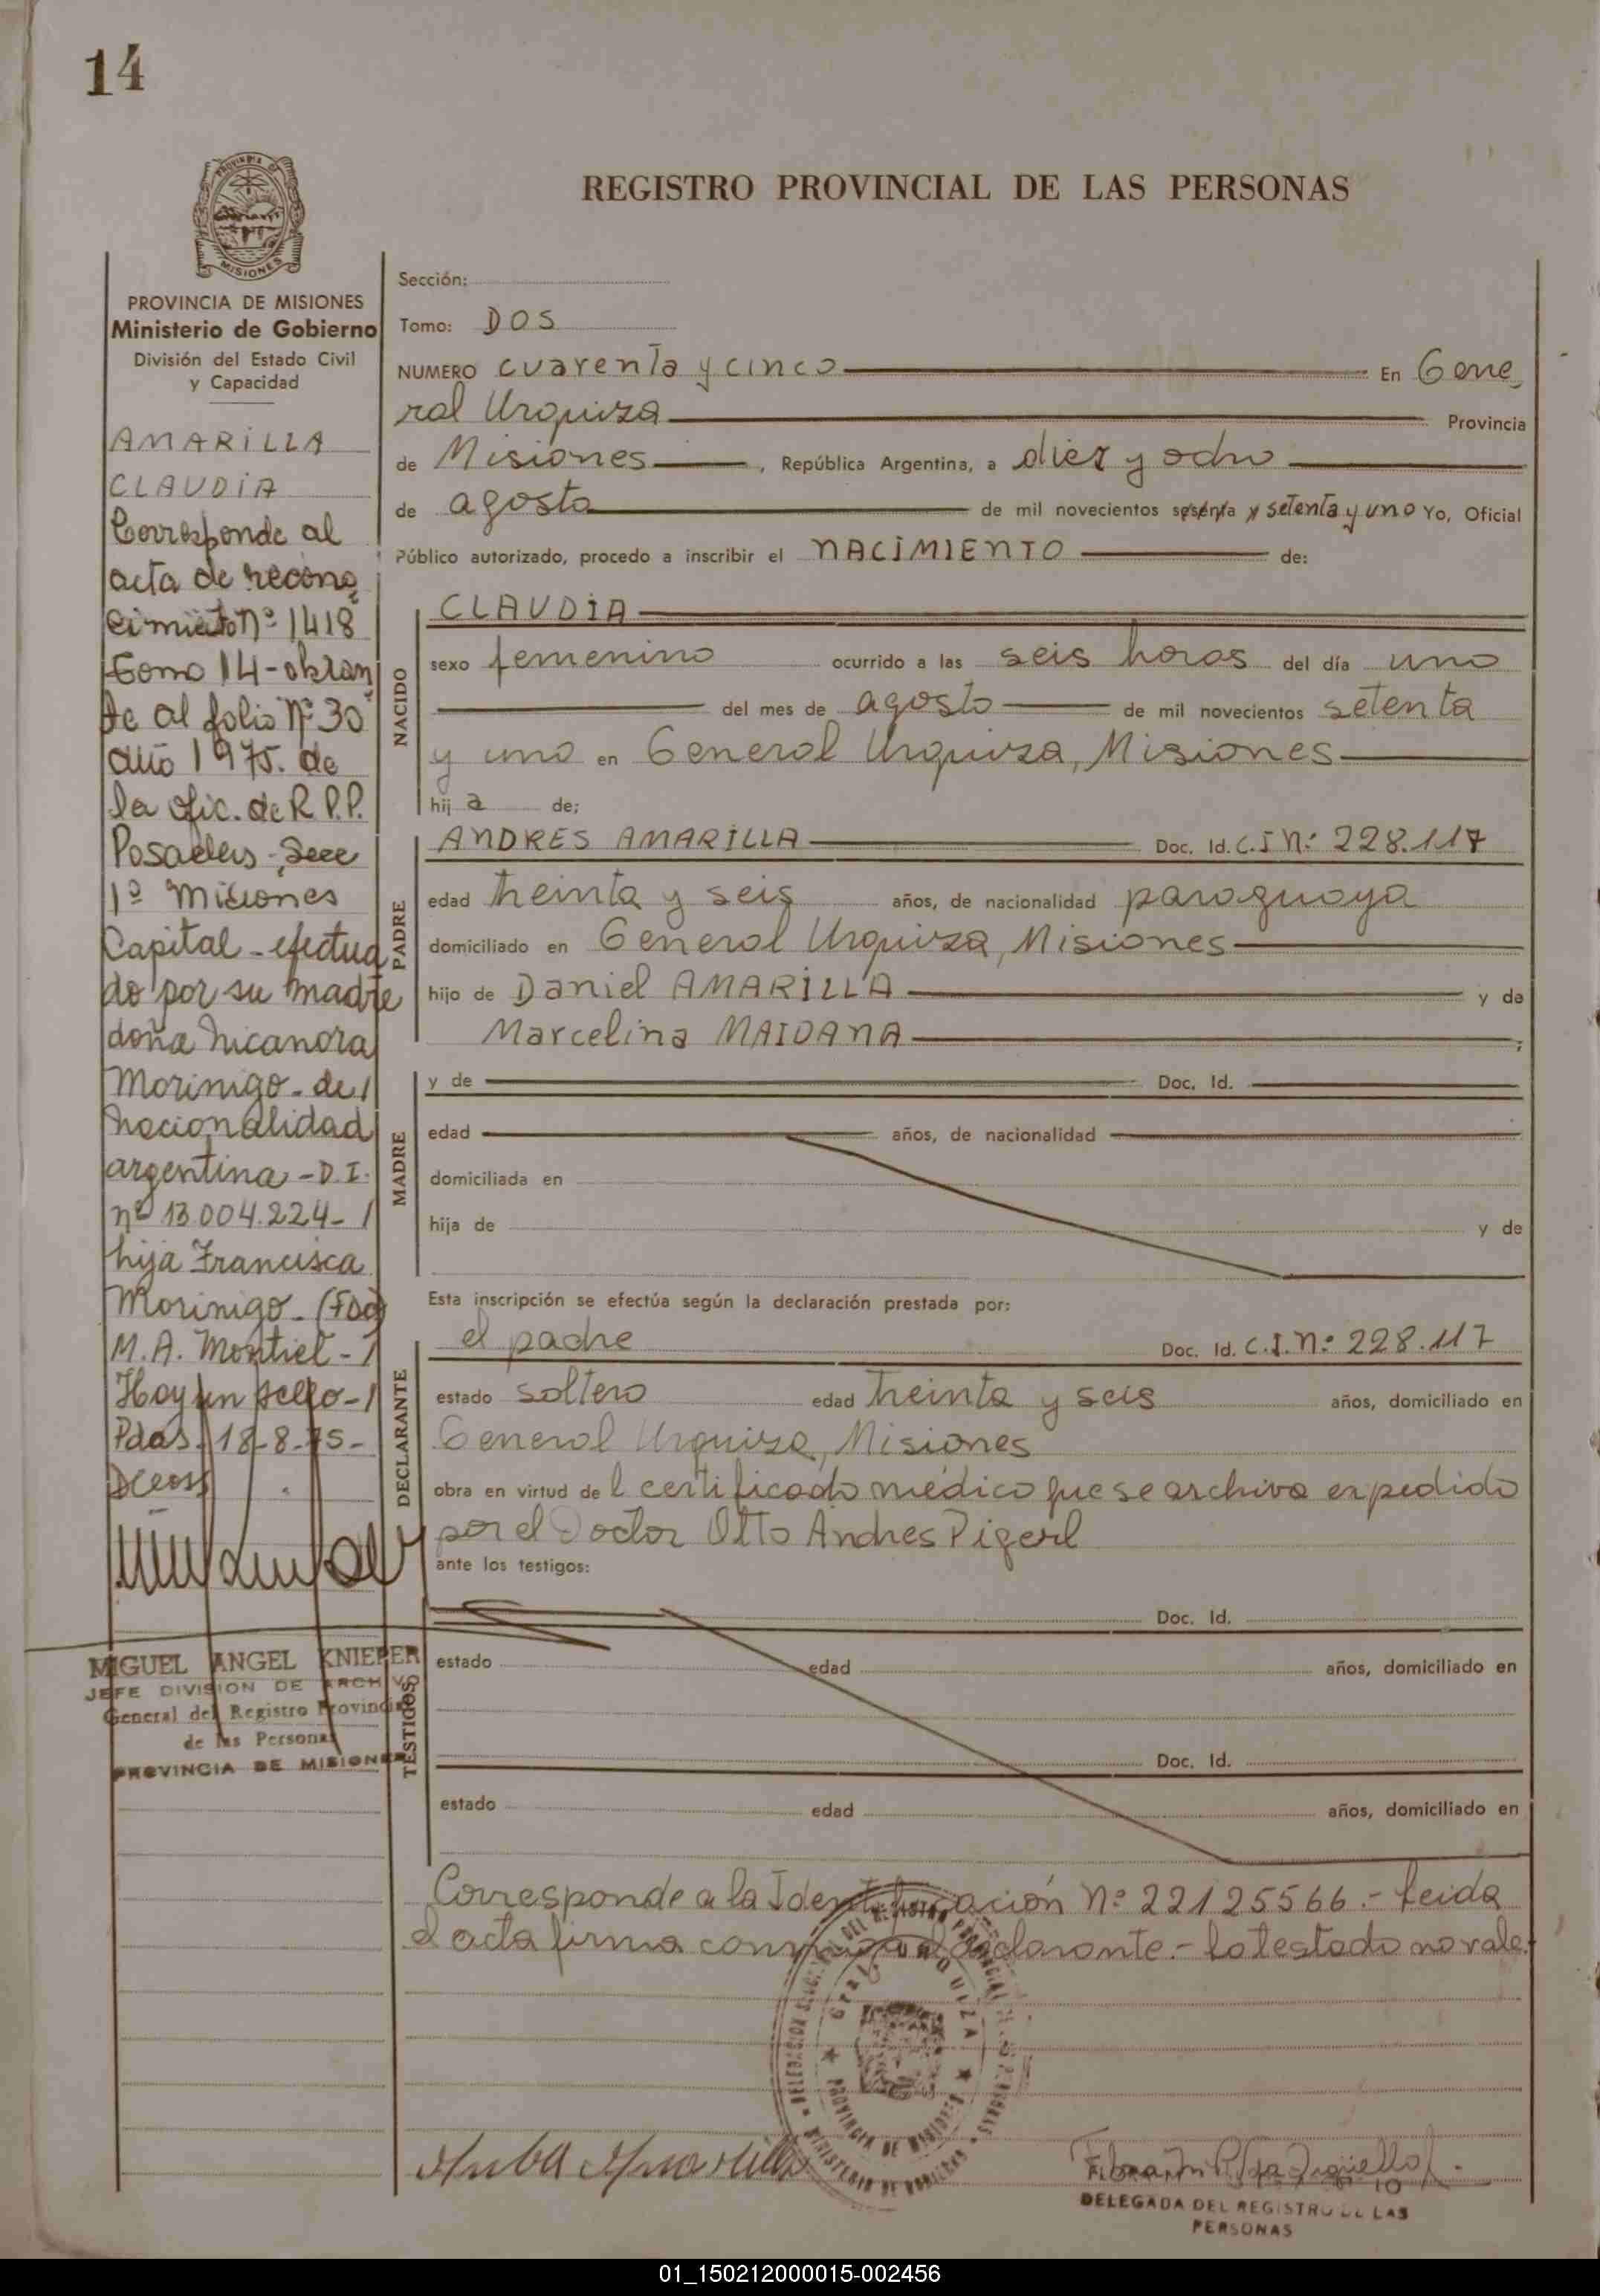 14
REGISTRO PROVINCIAL DE LAS PERSONAS
PROVINCIA DE MISIONES
Ministerio de Gobierno
División del Estado Civil
y Capacidad
AMARILLA
CLAUDIA
Corresponde al
acta de recono
cimiento Nº 1418
Tomo 14 - obran
te al folio Nº 30
año 1975. de
la ofic. de R.P.P.
Posadas - Secc
1º Misiones
Capital - efectua
do por su madre
doña Nicanora
Morinigo - de /
nacionalidad
argentina - D.I.
nº 13.004.224 - /
hija Francisca
Morinigo - (Fdo)
M.A. Montiel - /
Hay un sello - /
Pdas. 18-8-75 -
MIGUEL ANGEL KNIEPER
JEFE DIVISION DE ARCHIVO
General del Registro Provincial
de las Personas
PROVINCIA DE MISIONES
Sección:
Tomo: DOS
NUMERO cuarenta y cinco En Gene
ral Urquiza Provincia
de Misiones, República Argentina, a diez y ocho
de agosto de mil novecientos sesenta y setenta y uno Yo, Oficial
Público autorizado, procedo a inscribir el NACIMIENTO de:
NACIDO
CLAUDIA
sexo femenino ocurrido a las seis horas del día uno
del mes de agosto de mil novecientos setenta
y uno en General Urquiza, Misiones
hij a de;
PADRE
ANDRES AMARILLA Doc. Id. C.I Nº: 228.117
edad treinta y seis años, de nacionalidad paraguaya
domiciliado en General Urquiza, Misiones
hijo de Daniel AMARILLA y de
Marcelina MAIDANA ;
MADRE
y de Doc. Id.
edad años, de nacionalidad
domiciliada en
hija de y de
Esta inscripción se efectúa según la declaración prestada por:
DECLARANTE
el padre Doc. Id. C.I. Nº: 228.117
estado soltero edad treinta y seis años, domiciliado en
General Urquiza, Misiones
obra en virtud de l certificado médico que se archiva expedido
por el Doctor Otto Andres Pigerl
ante los testigos:
TESTIGOS
Doc. Id.
estado edad años, domiciliado en
Doc. Id.
estado edad años, domiciliado en
Corresponde a la Identificación Nº 22125566.- Leida
el acta firma conmigo el declarante.- Lo testado no vale.
GRAL. URQUIZA
PROVINCIA DE MISIONES
DELEGADA DEL REGISTRO DE LAS
PERSONAS
01_150212000015-002456